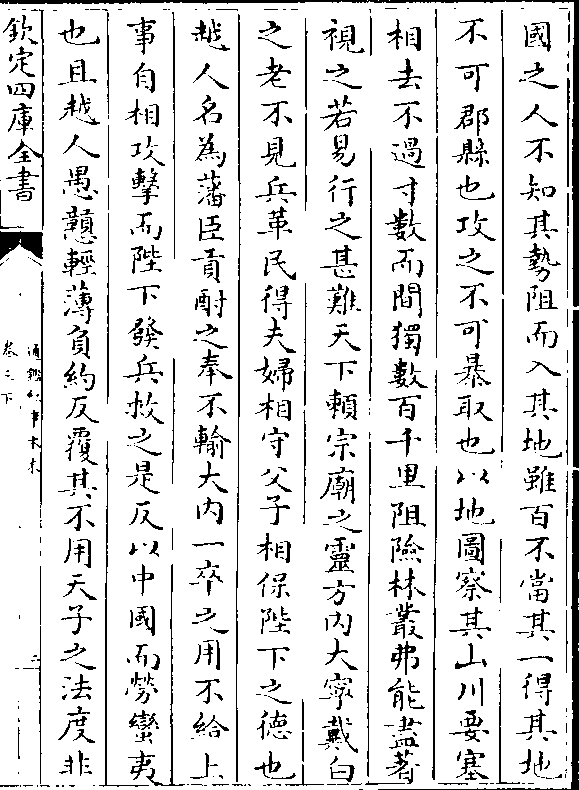 國之人不知其勢阻而入其地雖百不當其一得其地
不可郡縣也攻之不可暴取也以地圖察其山川要塞
相去不過寸數而間獨數百千里阻險林叢弗能盡著
視之若易行之甚難天下賴宗廟之靈方内大寧戴白
之老不見兵革民得夫婦相守父子相保陛下之德也
越人名為藩臣貢酎之奉不輸大内一卒之用不給上
事自相攻擊而陛下發兵救之是反以中國而勞蠻夷
也且越人愚戇輕薄負約反覆其不用天子之法度非
欽定四庫全書
通鑑紀事本末
卷二下
三